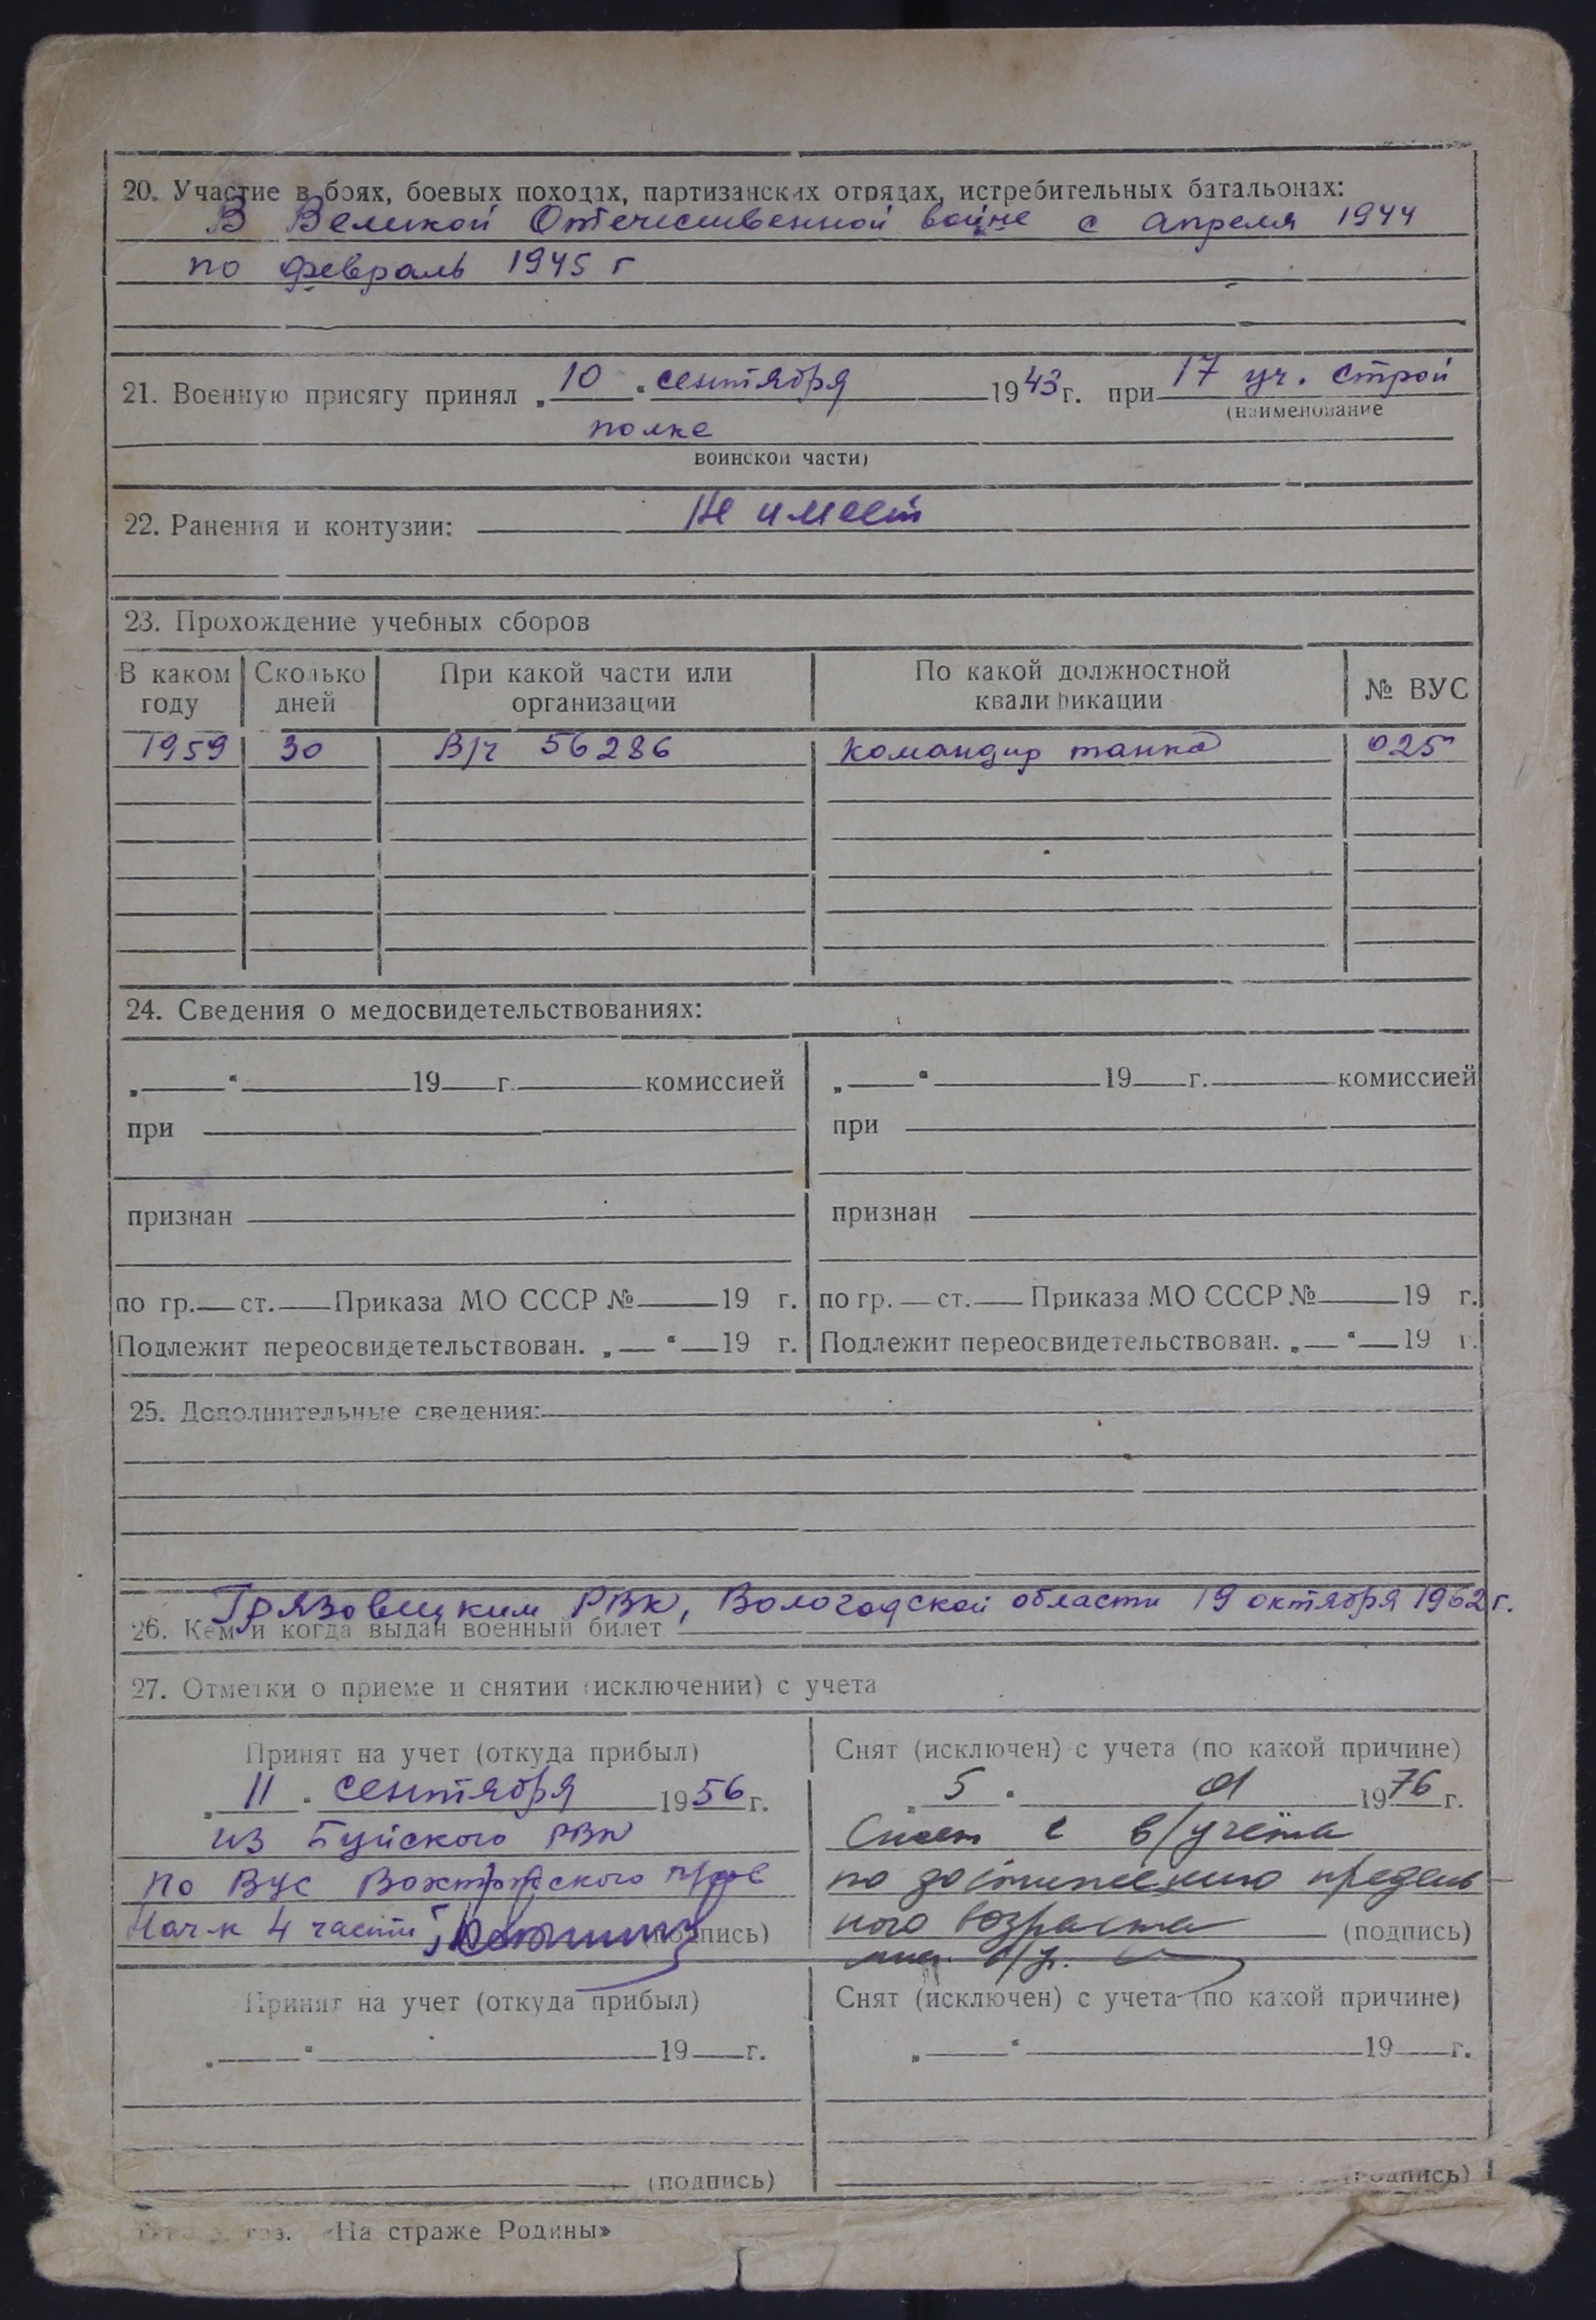 20. Участие в боях, боевых походах, партизанских отрядах, истребительных батальонах:
В Великой Отечественной войне с апреля 1944
по февраль 1945 г
21. Военную присягу принял „10“ сентября 1943 г. при 17 уч. строй
(наименование
полке
воинской части)
22. Ранения и контузии: Не имеет
23. Прохождение учебных сборов
В каком году Сколько дней При какой части или организации По какой должностной квалификации № ВУС
1959 30 В/ч 56286 командир танка 025
24. Сведения о медосвидетельствованиях:
„ “ 19 г. комиссией „ “ 19 г. комиссией
при при
признан признан
по гр. ст. Приказа МО СССР № 19 г. по гр. ст. Приказа МО СССР № 19 г.
Подлежит переосвидетельствован. „ “ 19 г. Подлежит переосвидетельствован. „ “ 19 г.
25. Дополнительные сведения:
Грязовецким РВК, Вологодской области 19 октября 1962 г.
26. Кем и когда выдан военный билет
27. Отметки о приеме и снятии (исключении) с учета
Принят на учет (откуда прибыл) Снят (исключен) с учета (по какой причине)
„11“ сентября 1956 г. „5“ 01 1976 г.
из Буйского РВК Снят с в/учёта
по ВУС по достижению предель
Нач-к 4 части (подпись) ного возраста (подпись)
Принят на учет (откуда прибыл) Снят (исключен) с учета (по какой причине)
„ “ 19 г. „ “ 19 г.
(подпись) (подпись)
«На страже Родины»